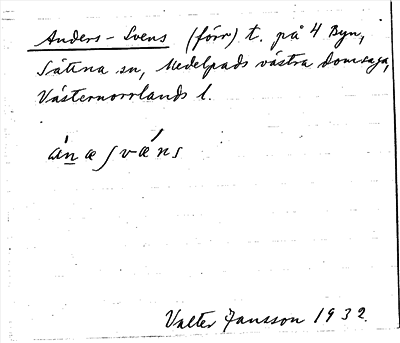 Anders-Svens (förr) t. på 4 Byn,
Sättna sn, Medelpads västra domsaga,
Västernorrlands l.
áṉæʃvǽns
Valter Jansson 1932.